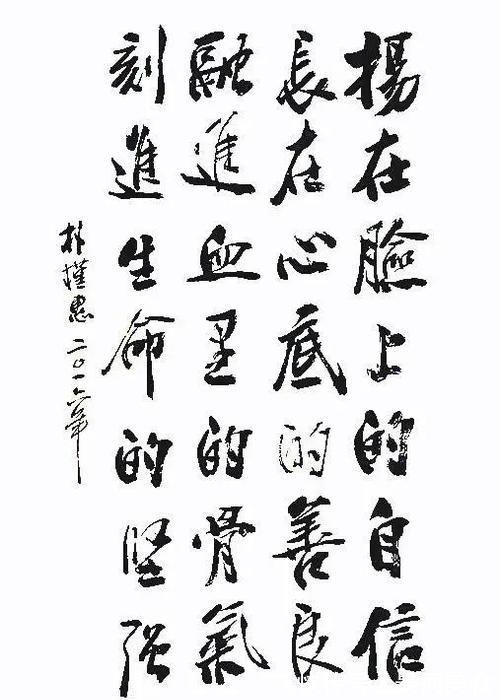 揚在臉上的自信
長在心底的善良
融進血里的骨氣
刻進生命的坚强
朴槿惠 二〇一六年